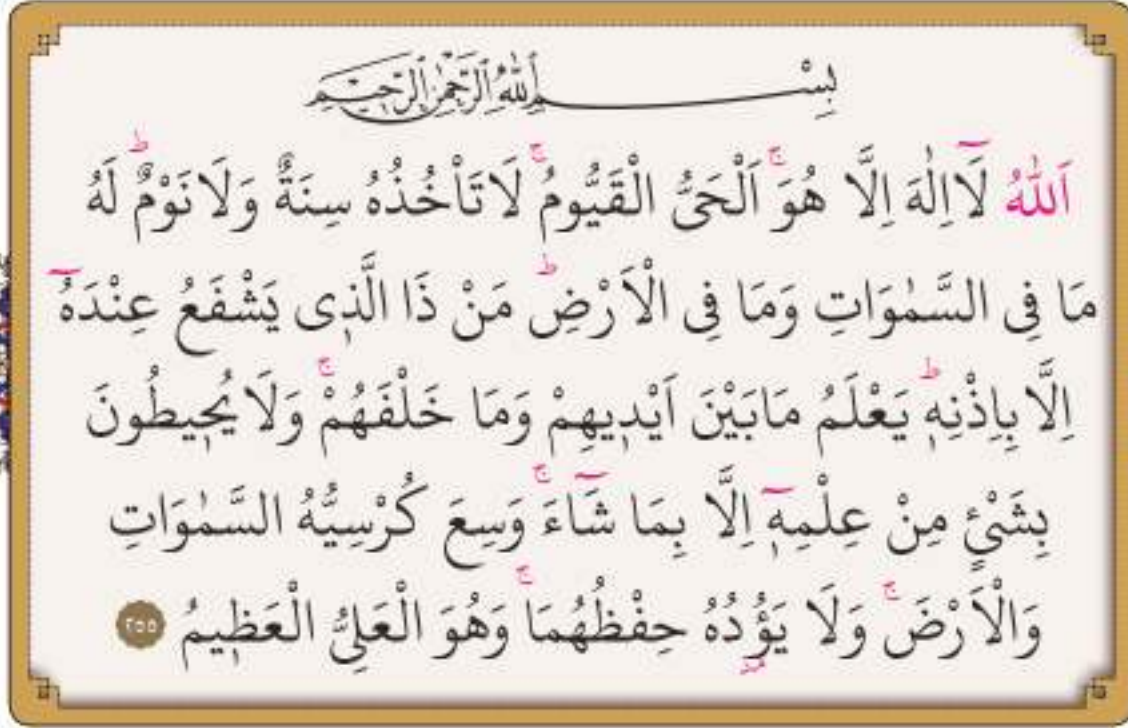 بِسْمِ اللهِ الرَّحْمٰنِ الرَّحِيمِ
اَللهُ لَٓااِلٰهَ اِلَّا هُوَۚ اَلْحَىُّ الْقَيُّومُۚ لَاتَاْخُذُهُ سِنَةٌ وَلَانَوْمٌۜ لَهُ
مَا فِى السَّمٰوَاتِ وَمَا فِى الْاَرْضِۜ مَنْ ذَا الَّذٖى يَشْفَعُ عِنْدَهُٓ
اِلَّا بِاِذْنِهٖۜ يَعْلَمُ مَابَيْنَ اَيْدٖيهِمْ وَمَا خَلْفَهُمْۚ وَلَا يُحٖيطُونَ
بِشَىْءٍ مِنْ عِلْمِهٖٓ اِلَّا بِمَا شَٓاءَۚ وَسِعَ كُرْسِيُّهُ السَّمٰوَاتِ
وَالْاَرْضَۚ وَلَا يَؤُدُهُ حِفْظُهُمَاۚ وَهُوَ الْعَلِىُّ الْعَظٖيمُ ٢٥٥